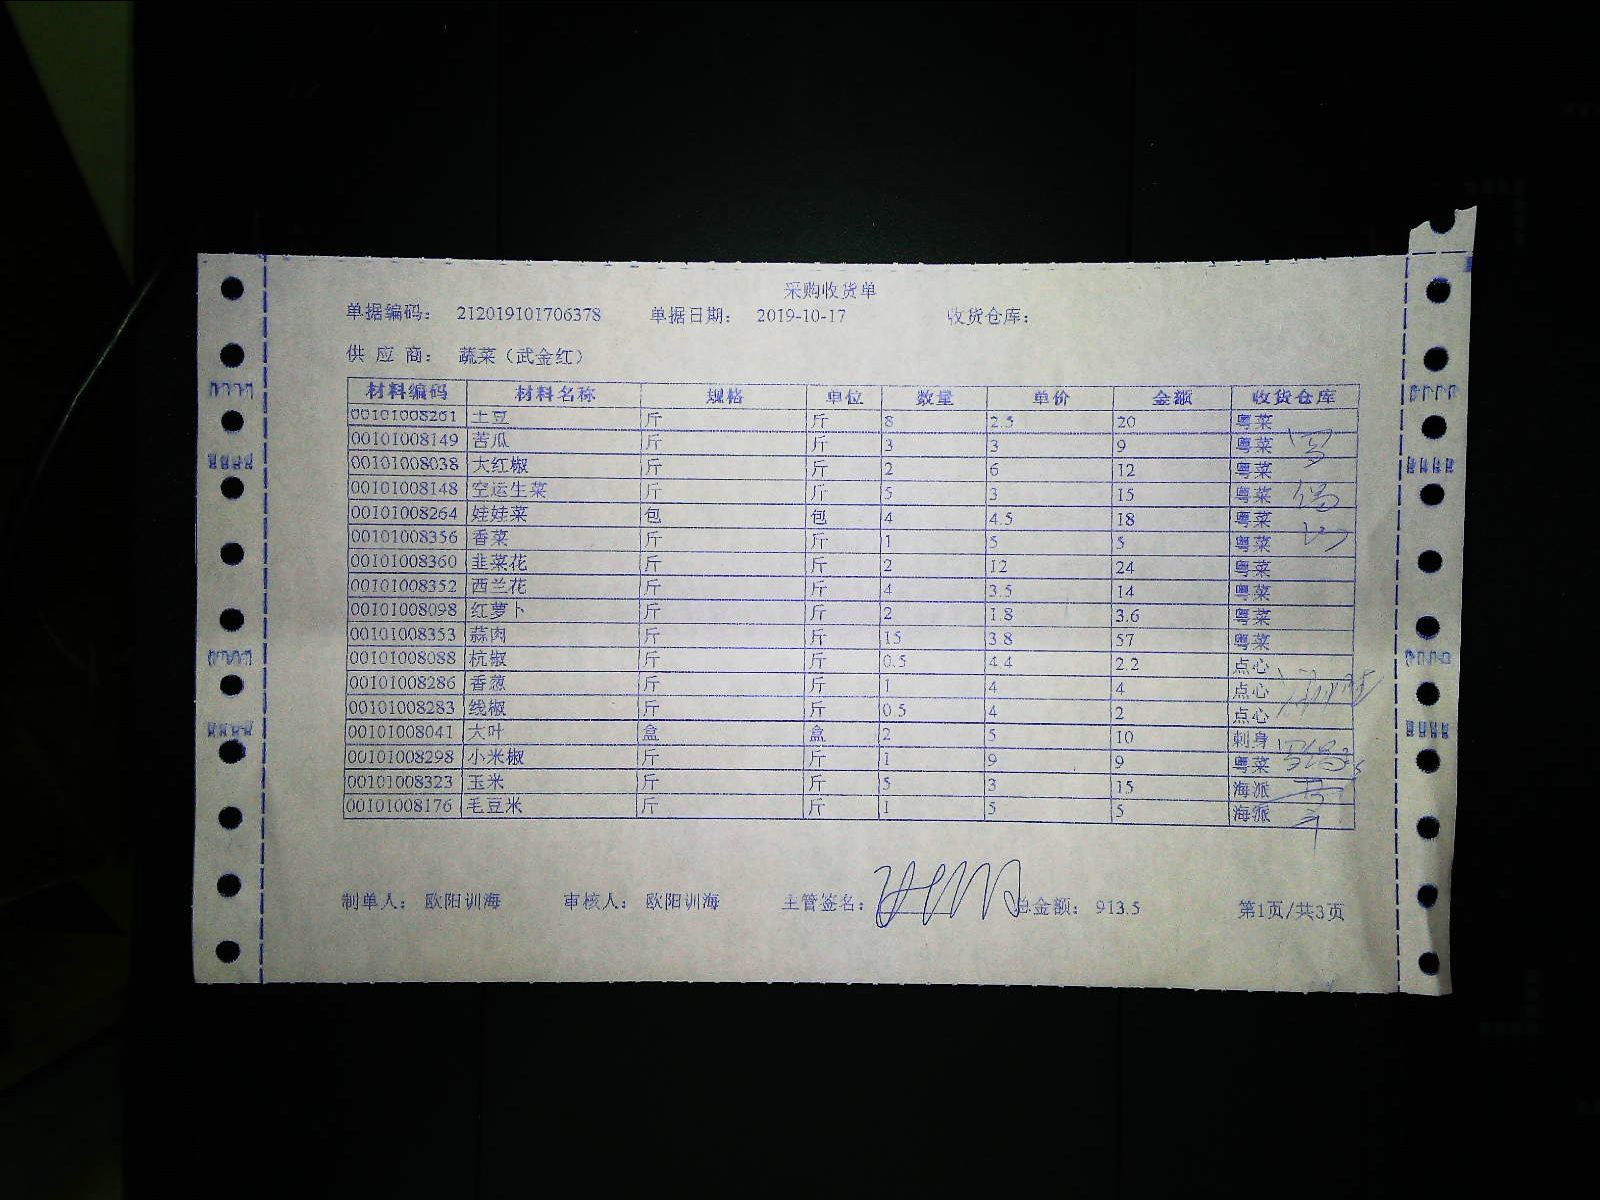 采购收货单
单据编码： 212019101706378 单据日期： 2019-10-17 收货仓库：
供 应 商： 蔬菜（武金红）
材料编码 材料名称 规格 单位 数量 单价 金额 收货仓库
00101008261 土豆 斤 斤 8 2.5 20 粤菜
00101008149 苦瓜 斤 斤 3 3 9 粤菜
00101008038 大红椒 斤 斤 2 6 12 粤菜
00101008148 空运生菜 斤 斤 5 3 15 粤菜
00101008264 娃娃菜 包 包 4 4.5 18 粤菜
00101008356 香菜 斤 斤 1 5 5 粤菜
00101008360 韭菜花 斤 斤 2 12 24 粤菜
00101008352 西兰花 斤 斤 4 3.5 14 粤菜
00101008098 红萝卜 斤 斤 2 1.8 3.6 粤菜
00101008353 蒜肉 斤 斤 15 3.8 57 粤菜
00101008088 杭椒 斤 斤 0.5 4.4 2.2 点心
00101008286 香葱 斤 斤 1 4 4 点心
00101008283 线椒 斤 斤 0.5 4 2 点心
00101008041 大叶 盒 盒 2 5 10 刺身
00101008298 小米椒 斤 斤 1 9 9 粤菜
00101008323 玉米 斤 斤 5 3 15 海派
00101008176 毛豆米 斤 斤 1 5 5 海派
制单人： 欧阳训海 审核人： 欧阳训海 主管签名： 总金额： 913.5 第1页/共3页